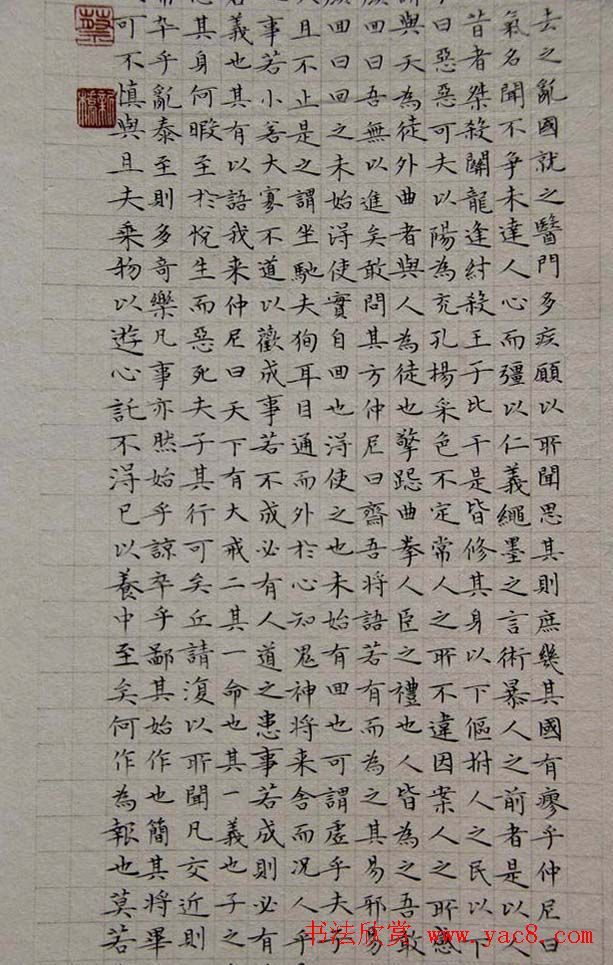 去之亂國就之醫門多疾願以所聞思其則庶幾其國有瘳乎仲尼曰
氣名聞不爭未達人心而彊以仁義繩墨之言術暴人之前者是以人
昔者桀殺關龍逢紂殺王子比干是皆修其身以下傴拊人之民以下
曰惡惡可夫以陽為充孔揚采色不定常人之所不違因案人之所感
謂與天為徒外曲者與人為徒也擎跽曲拳人臣之禮也人皆為之吾敢
顏回曰吾無以進矣敢問其方仲尼曰齋吾將語若有而為之其易邪易
顏回曰回之未始得使實自回也得使之也未始有回也可謂虛乎夫子
且不止是之謂坐馳夫徇耳目通而外於心知鬼神將来舍而況人乎
事若小若大寡不道以歡成事若不成必有人道之患事若成則必有
義也其有以語我来仲尼曰天下有大戒二其一命也其一義也子之
其身何暇至於悅生而惡死夫子其行可矣丘請復以所聞凡交近則
卒乎亂泰至則多奇樂凡事亦然始乎諒卒乎鄙其始作也簡其將畢
可不慎與且夫乘物以遊心託不得已以養中至矣何作為報也莫若
蔡
新橋
书法欣赏 www.yac8.com